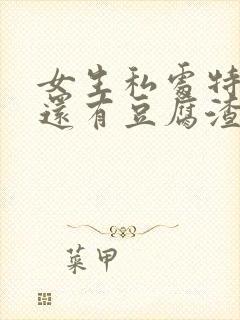 女生私處特
還有豆腐渣
菜甲